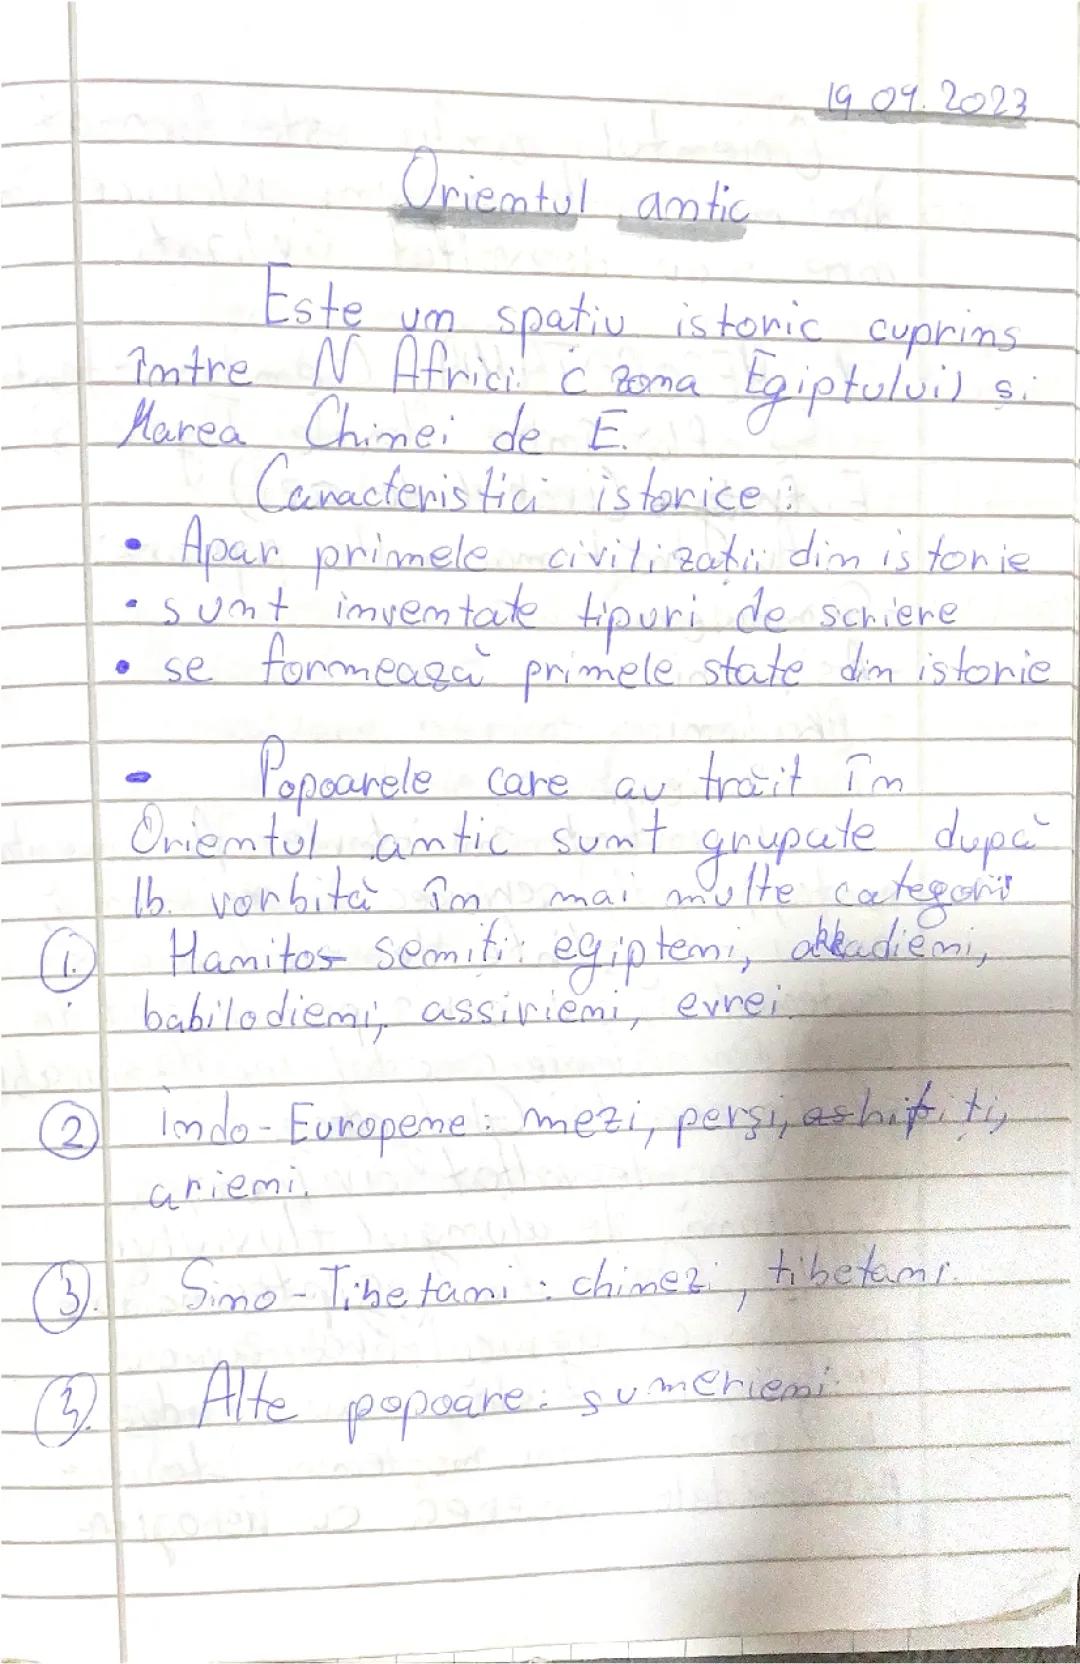 19.09.2023
Orientul antic
Este un spatiu istoric cuprins
între N Africi (zona Egiptului) si
Marea Chinei de E.
Caracteristici istorice:
• Apar primele civilizatii din istorie
• sunt inventate tipuri de scriere
• se formează primele state din istorie
- Popoarele care au trăit în
Orientul antic sunt grupate după
lb. vorbită în mai multe categorii
1. Hamitos semiti: egipteni, akkadieni,
babilodieni, assirieni, evrei.
2 indo-Europene: mezi, perși, hititi,
arieni.
3. Sino-Tibetani: chinezi, tibetani.
3. Alte popoare: sumerieni.